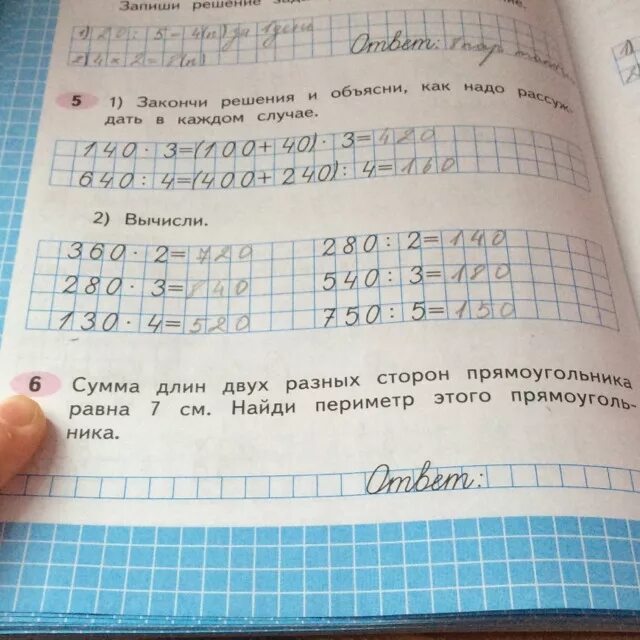 Запиши решение
1) 20 : 5 = 4(п) за 1 день
Ответ: 8
2) 4 × 2 = 8(п)
5 1) Закончи решения и объясни, как надо рассуж-
дать в каждом случае.
140 · 3=(100+40) · 3=420
640 : 4=(400+240) : 4=160
2) Вычисли.
360 · 2=720 280 : 2=140
280 · 3=840 540 : 3=180
130 · 4=520 750 : 5=150
6 Сумма длин двух разных сторон прямоугольника
равна 7 см. Найди периметр этого прямоуголь-
ника.
Ответ: